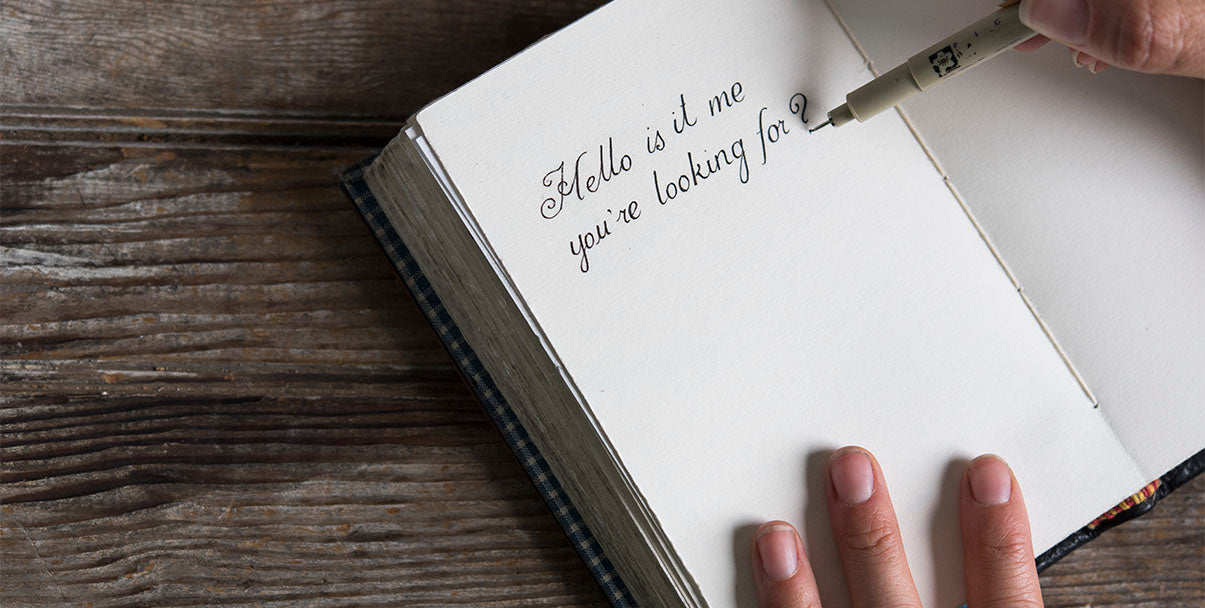 Hello is it me
you're looking for?